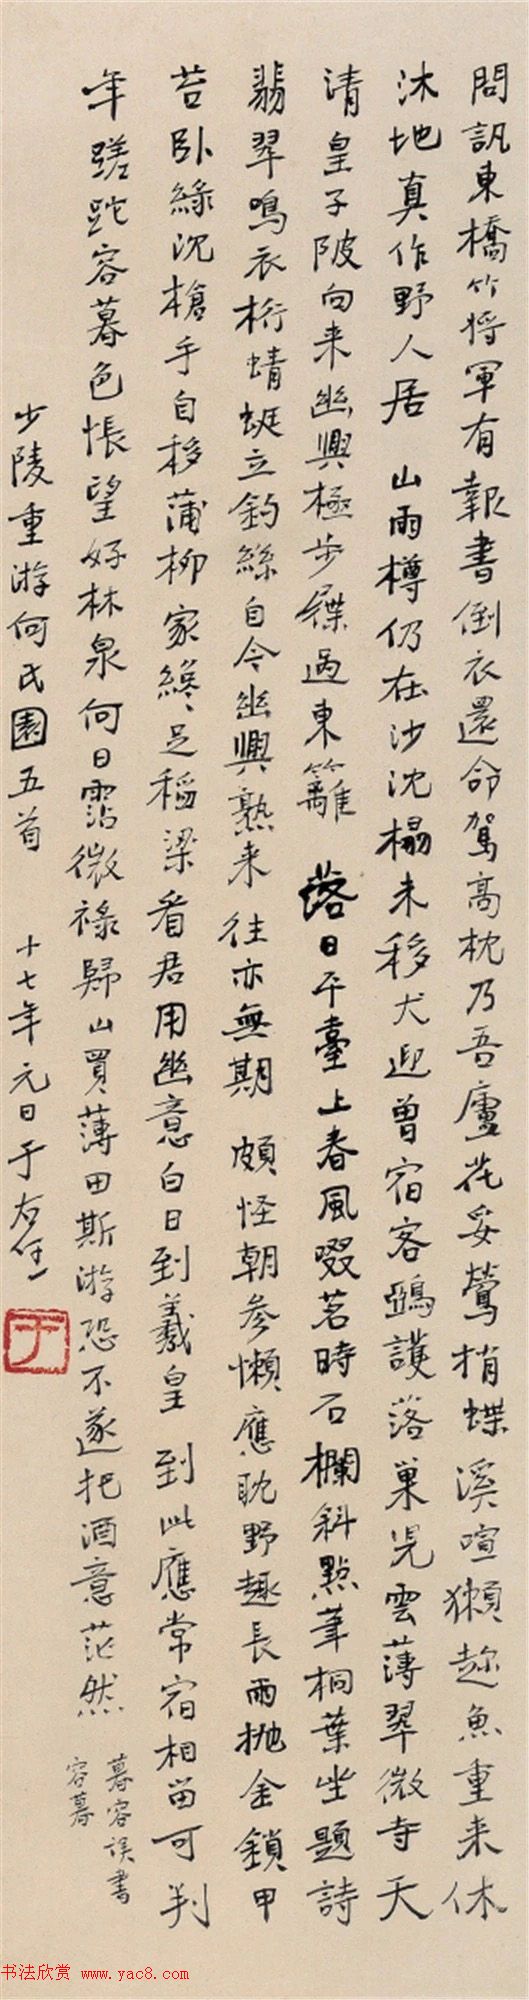 問訊東橋竹将軍有報書倒衣還命駕高枕乃吾廬花妥鶯捎蝶溪喧獺趂魚重来休
沐地真作野人居 山雨樽仍在沙沈榻未移犬迎曽宿客鴉護落巢児雲薄翠微寺天
清皇子陂向来幽興極步屧過東籬 落日平臺上春風啜茗時石欄斜點筆桐葉坐題詩
翡翠鳴衣桁蜻蜓立釣絲自今幽興熟来往亦無期 頗怪朝參懶應耽野趣長雨抛金鎖甲
苔卧綠沉槍手自移蒲柳家纔足稻梁看君用幽意白日到羲皇 到此應常宿相留可判
年蹉跎容暮色悵望好林泉何日霑微祿歸山買薄田斯游恐不遂把酒意茫然
暮容誤書
容暮
少陵重游何氏園五首 十七年元日于右任
于
书法欣赏 www.yac8.com